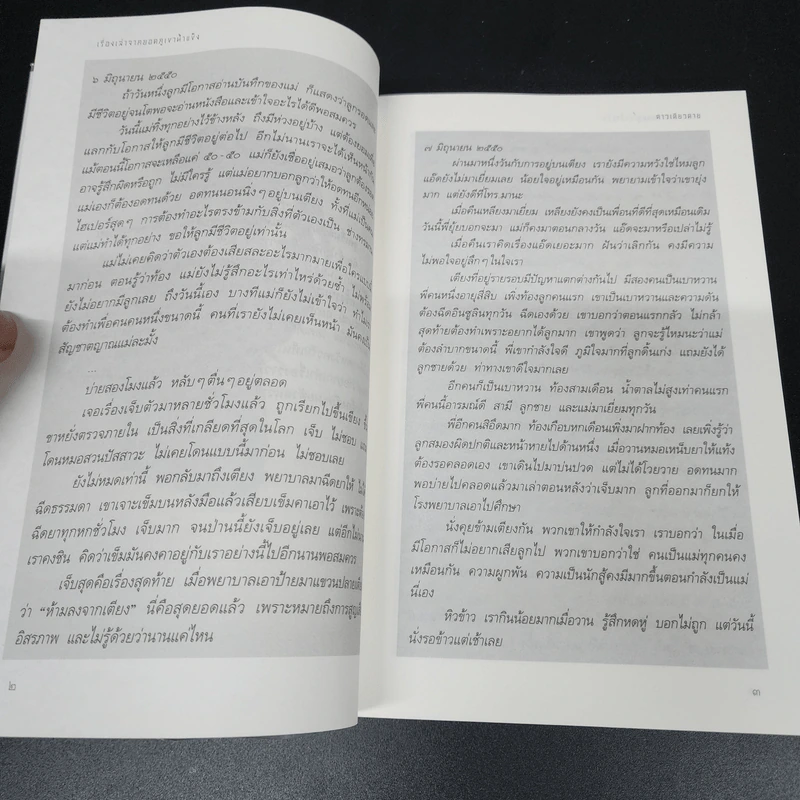 เรื่องเล่าจากยอดภูเขาน้ำแข็ง
๖ มิถุนายน ๒๕๕๐
ถ้าวันหนึ่งลูกมีโอกาสอ่านบันทึกของแม่ ก็แสดงว่าลูกรอด
มีชีวิตอยู่จนโตพอจะอ่านหนังสือและเข้าใจอะไรได้ดีพอสมควร
วันนี้แม่ทิ้งทุกอย่างไว้ข้างหลัง ถึงมีห่วงอยู่บ้าง แต่ต้องยอม
แลกกับโอกาสให้ลูกมีชีวิตอยู่ต่อไป อีกไม่นานเราจะได้เห็นหน้ากัน
แม้ตอนนี้โอกาสจะเหลือแค่ ๕๐-๕๐ แม่ก็ยังเชื่ออยู่เสมอว่าลูกต้อง
อาจรู้สึกผิดหรือถูก ไม่มีใครรู้ แต่แม่อยากบอกลูกว่าให้อดทนอีก
แม่เองก็ต้องอดทนด้วย อดทนนอนนิ่งๆอยู่บนเตียง ทั้งที่แม่เป็น
ไฮเปอร์สุดๆ การต้องทำอะไรตรงข้ามกับสิ่งที่ตัวเองเป็น ช่าง
แต่แม่ทำได้ทุกอย่าง ขอให้ลูกมีชีวิตอยู่เท่านั้น
แม่ไม่เคยคิดว่าตัวเองต้องเสียสละอะไรมากมายเพื่อใคร
มาก่อน ตอนรู้ว่าท้อง แม่ยังไม่รู้สึกอะไรเท่าไหร่ด้วยซ้ำ ไม่
ยังไม่อยากมีลูกเลย ถึงวันนี้เอง บางทีแม่ก็ยังไม่เข้าใจว่า
ต้องทำเพื่อคนคนหนึ่งขนาดนี้ คนที่เรายังไม่เคยเห็นหน้า มันคง
สัญชาตญาณแม่ละมั้ง
...
บ่ายสองโมงแล้ว หลับๆตื่นๆอยู่ตลอด
เจอเรื่องเจ็บตัวมาหลายชั่วโมงแล้ว ถูกเรียกไปขึ้นเขียง
ขาหยั่งตรวจภายใน เป็นสิ่งที่เกลียดที่สุดในโลก เจ็บ ไม่ชอบ
โดนหมอสวนปัสสาวะ ไม่เคยโดนแบบนี้มาก่อน ไม่ชอบเลย
ยังไม่หมดเท่านี้ พอกลับมาถึงเตียง พยาบาลมาฉีดยาให้
ฉีดธรรมดา เขาเจาะเข็มบนหลังมือแล้วเสียบเข็มคาเอาไว้ เพราะ
ฉีดยาทุกหกชั่วโมง เจ็บมาก จนป่านนี้ยังเจ็บอยู่เลย แต่อีกไม่
เราคงชิน คิดว่าเข็มมันคงคาอยู่กับเราอย่างนี้ไปอีกนานพอสมควร
เจ็บสุดคือเรื่องสุดท้าย เมื่อพยาบาลเอาป้ายมาแขวนปลายเตียง
ว่า “ห้ามลงจากเตียง” นี่คือสุดยอดแล้ว เพราะหมายถึงการสูญ
อิสรภาพ และไม่รู้ด้วยว่านานแค่ไหน
๒
ดาวเดียวดาย
๗ มิถุนายน ๒๕๕๐
ผ่านมาหนึ่งวันกับการอยู่บนเตียง เรายังมีความหวังใช่ไหมลูก
แอ๊ดยังไม่มาเยี่ยมเลย น้อยใจอยู่เหมือนกัน พยายามเข้าใจว่าเขายุ่ง
มาก แต่ยังดีที่โทร.มานะ
เมื่อคืนเหลียงมาเยี่ยม เหลียงยังคงเป็นเพื่อนที่ดีที่สุดเหมือนเดิม
วันนี้พี่ยุ้ยบอกจะมา แม่ก็คงมาตอนกลางวัน แอ๊ดจะมาหรือเปล่าไม่รู้
เมื่อคืนเราคิดเรื่องแอ๊ดเยอะมาก ฝันว่าเลิกกัน คงมีความ
ไม่พอใจอยู่ลึกๆในใจเรา
เตียงที่อยู่รายรอบมีปัญหาแตกต่างกันไป มีสองคนเป็นเบาหวาน
พี่คนหนึ่งอายุสี่สิบ เพิ่งท้องลูกคนแรก เขาเป็นเบาหวานและความดัน
ต้องฉีดอินซูลินทุกวัน ฉีดเองด้วย เขาบอกว่าตอนแรกกลัว ไม่กล้า
สุดท้ายต้องทำเพราะอยากได้ลูกมาก เขาพูดว่า ลูกจะรู้ไหมนะว่าแม่
ต้องลำบากขนาดนี้ พี่เขากำลังใจดี ภูมิใจมากที่ลูกดิ้นเก่ง แถมยังได้
ลูกชายด้วย ท่าทางเขาดีใจมากเลย
อีกคนก็เป็นเบาหวาน ท้องสามเดือน น้ำตาลไม่สูงเท่าคนแรก
พี่คนนี้อารมณ์ดี สามี ลูกชาย และแม่มาเยี่ยมทุกวัน
พี่อีกคนสิอึดมาก ท้องเกือบหกเดือนเพิ่งมาฝากท้อง เลยเพิ่งรู้ว่า
ลูกสมองผิดปกติและหน้าหายไปด้านหนึ่ง เมื่อวานหมอเหน็บยาให้แท้ง
ต้องรอคลอดเอง เขาเดินไปมาบ่นปวด แต่ไม่ได้โวยวาย อดทนมาก
พอบ่ายไปคลอดแล้วมาเล่าตอนหลังว่าเจ็บมาก ลูกที่ออกมาก็ยกให้
โรงพยาบาลเอาไปศึกษา
นั่งคุยข้ามเตียงกัน พวกเขาให้กำลังใจเรา เราบอกว่า ในเมื่อ
มีโอกาสก็ไม่อยากเสียลูกไป พวกเขาบอกว่าใช่ คนเป็นแม่ทุกคนคง
เหมือนกัน ความผูกพัน ความเป็นนักสู้คงมีมากขึ้นตอนกำลังเป็นแม่
นี่เอง
หิวข้าว เรากินน้อยมากเมื่อวาน รู้สึกหดหู่ บอกไม่ถูก แต่วันนี้
นั่งรอข้าวแต่เช้าเลย
๓